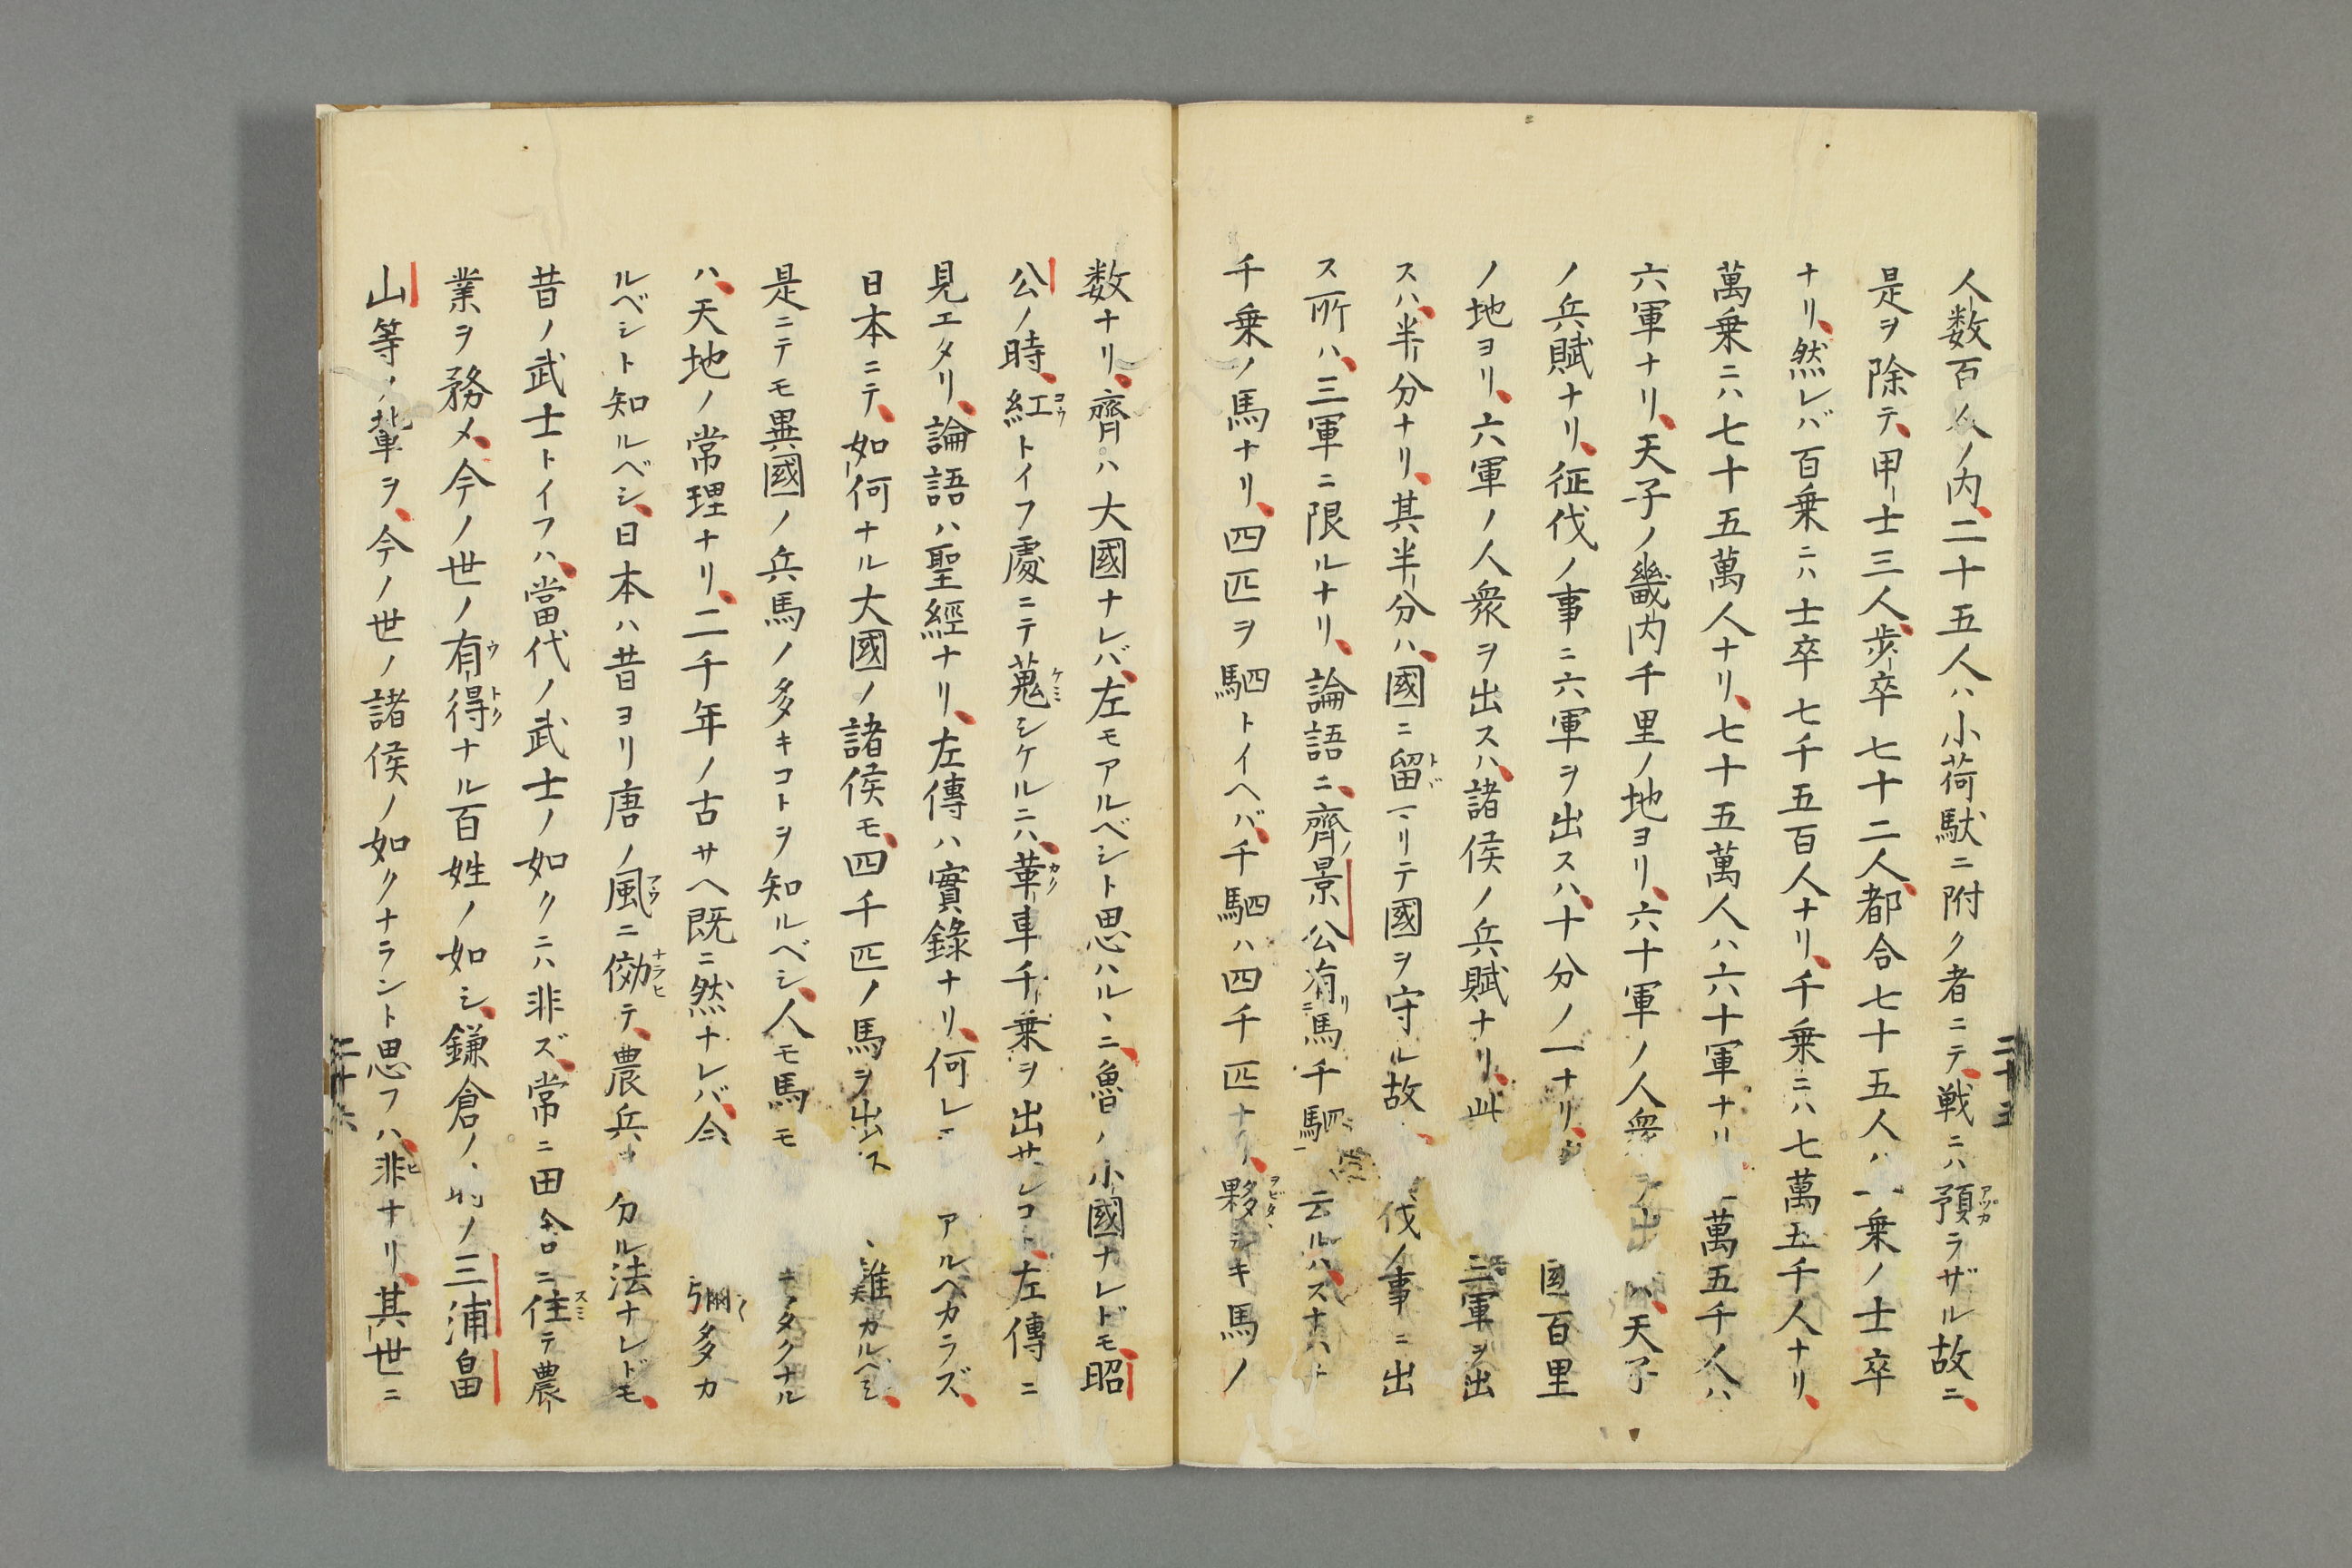 人数百人ノ内、二十五人ハ小荷駄ニ附ク者ニテ、戦ニハ預ラザル故ニ、
是ヲ除テ、甲士三人、歩卒七十二人、都合七十五人ハ一乗ノ士卒
ナリ、然レバ百乗ニハ士卒七千五百人ナリ、千乗ニハ七萬五千人ナリ、
萬乗ニハ七十五萬人ナリ、七十五萬人ハ六十軍ナリ 一萬五千人ハ
六軍ナリ、天子ノ畿内千里ノ地ヨリ、六十軍ノ人衆ヲ出 ハ、天子
ノ兵賦ナリ、征伐ノ事ニ六軍ヲ出スハ、十分ノ一ナリ、 國百里
ノ地ヨリ、六軍ノ人衆ヲ出スハ、諸侯ノ兵賦ナリ、此 三軍ヲ出
スハ、半分ナリ、其半分ハ、國ニ留リテ國ヲ守ル故、 伐ノ事ニ出
ス所ハ、三軍ニ限ルナリ、論語ニ、齊ノ景公有リ馬千駟 云ルハ、スナハチ
千乗ノ馬ナリ、四匹ヲ駟トイヘバ、千駟ハ四千匹ナリ、夥シキ馬ノ
数ナリ、齊ハ大國ナレバ、左モアルベシト思ハル、ニ、魯ノ小國ナレドモ、昭
公ノ時、紅トイフ處ニテ蒐シケルニハ、革車千乗ヲ出サレコト、左傳ニ
見エタリ、論語ハ聖經ナリ、左傳ハ實録ナリ、何レ アルヘカラズ、
日本ニテ、如何ナル大國ノ諸侯モ、四千匹ノ馬ヲ出ス 難カルヘシ、
是ニテモ異國ノ兵馬ノ多キコトヲ知ルベシ、人モ馬モ タクナル
ハ、天地ノ常理ナリ、二千年ノ古サヘ既ニ然ナレバ、今 弥多カ
ルベシト知ルベシ、日本ハ昔ヨリ唐ノ風ニ効テ、農兵 分ル法ナレドモ、
昔ノ武士トイフハ、當代ノ武士ノ如クニハ非ズ、常ニ田舎ニ住テ農
業ヲ務メ、今ノ世ノ有得ナル百姓ノ如シ、鎌倉ノ時ノ三浦畠
山等ノ輩ヲ、今ノ世ノ諸侯ノ如クナラント思フハ、非ナリ、其世ニ